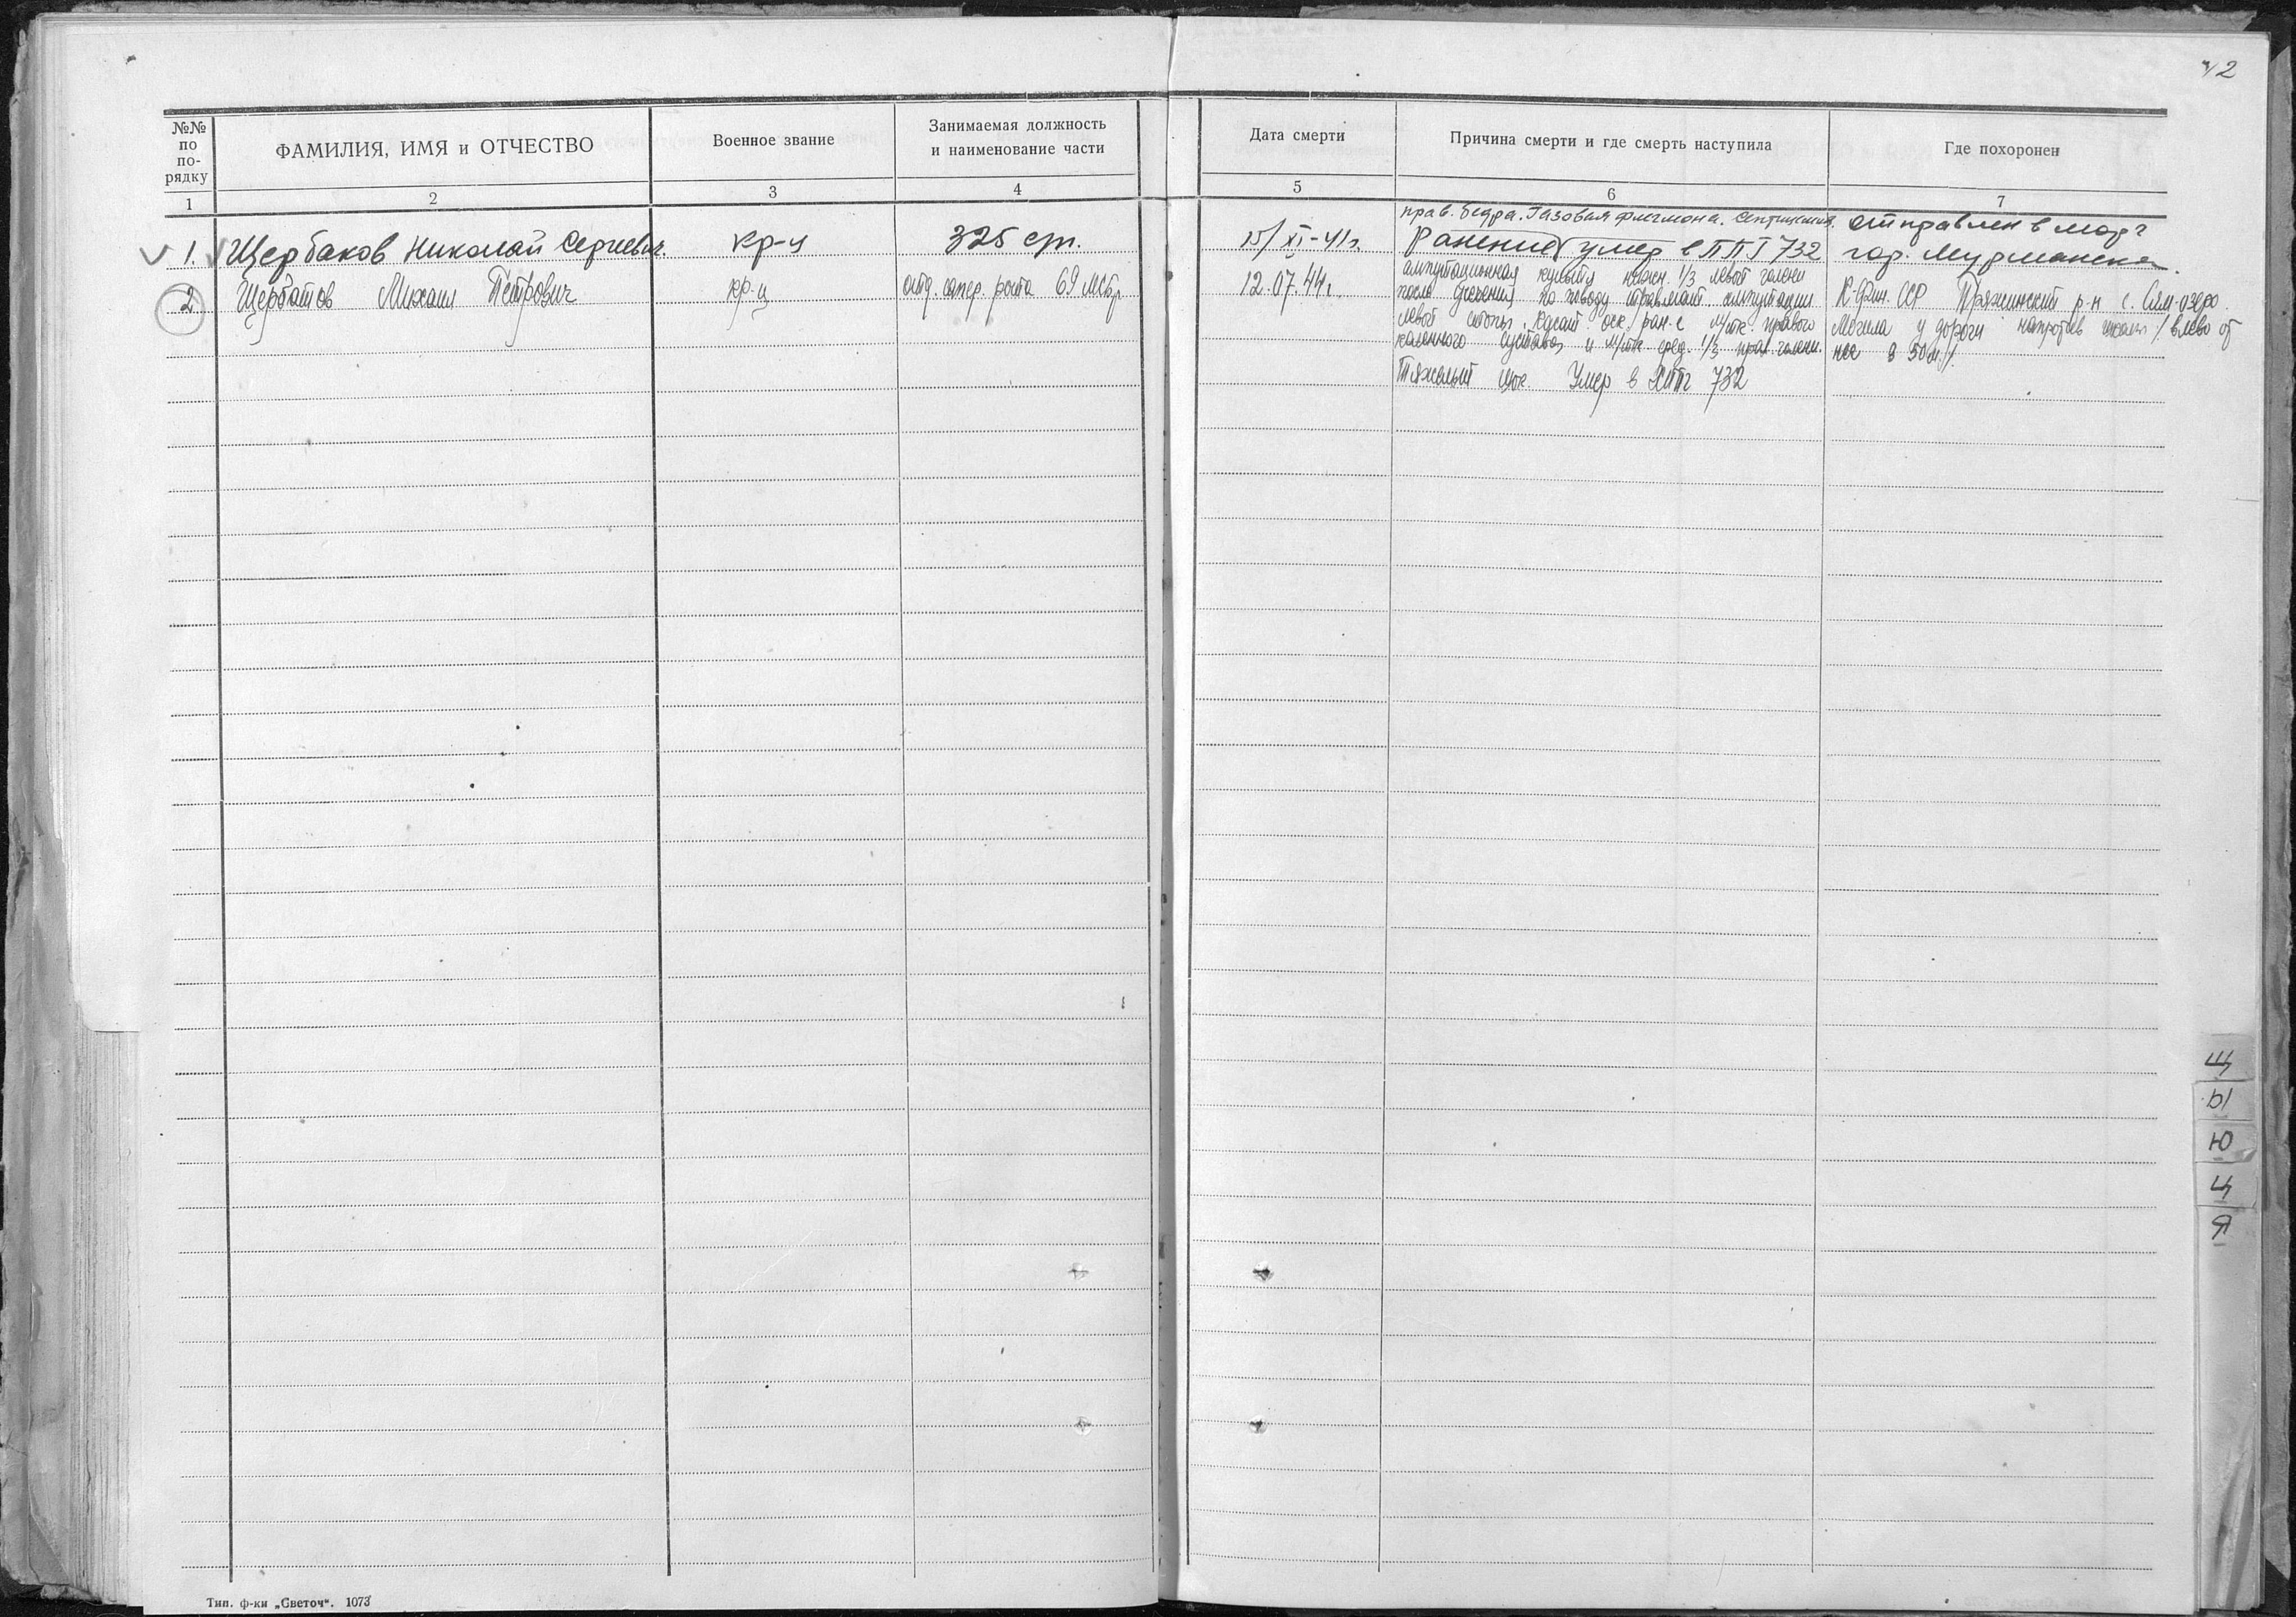 42
№№ по по-рядку
ФАМИЛИЯ, ИМЯ и ОТЧЕСТВО
Военное звание
Занимаемая должность и наименование части
Дата смерти
Причина смерти и где смерть наступила
Где похоронен
1 2 3 4 5 6 7
1. Щербаков Николай Сергеевич. кр-ц 325 сп. 15/XI-41г.
прав. бедра. Газовая флегмона.
Ранение умер в ППГ 732
отправлен в морг
гор. Мурманска.
2 Щербатов Михаил Петрович кр-ц отд. сапер. рота 69 мсбр 12.07.44г.
ампутационная культя нижн. 1/3 левой голени
после по поводу ампутации
левой стопы. Касат. оск. ран-е м/тк. правого
коленного сустава и м/тк сред. 1/3 прав. голени.
Тяжелый шок. Умер в ХППГ 732
К-Фин. ССР Пряжинский р-н с. Сям-озеро.
Могила у дороги напротив школы /влево от
нее в 50 м./.
Щ
Ы
Ю
Ц
Я
Тип. ф-ки „Светоч". 1073